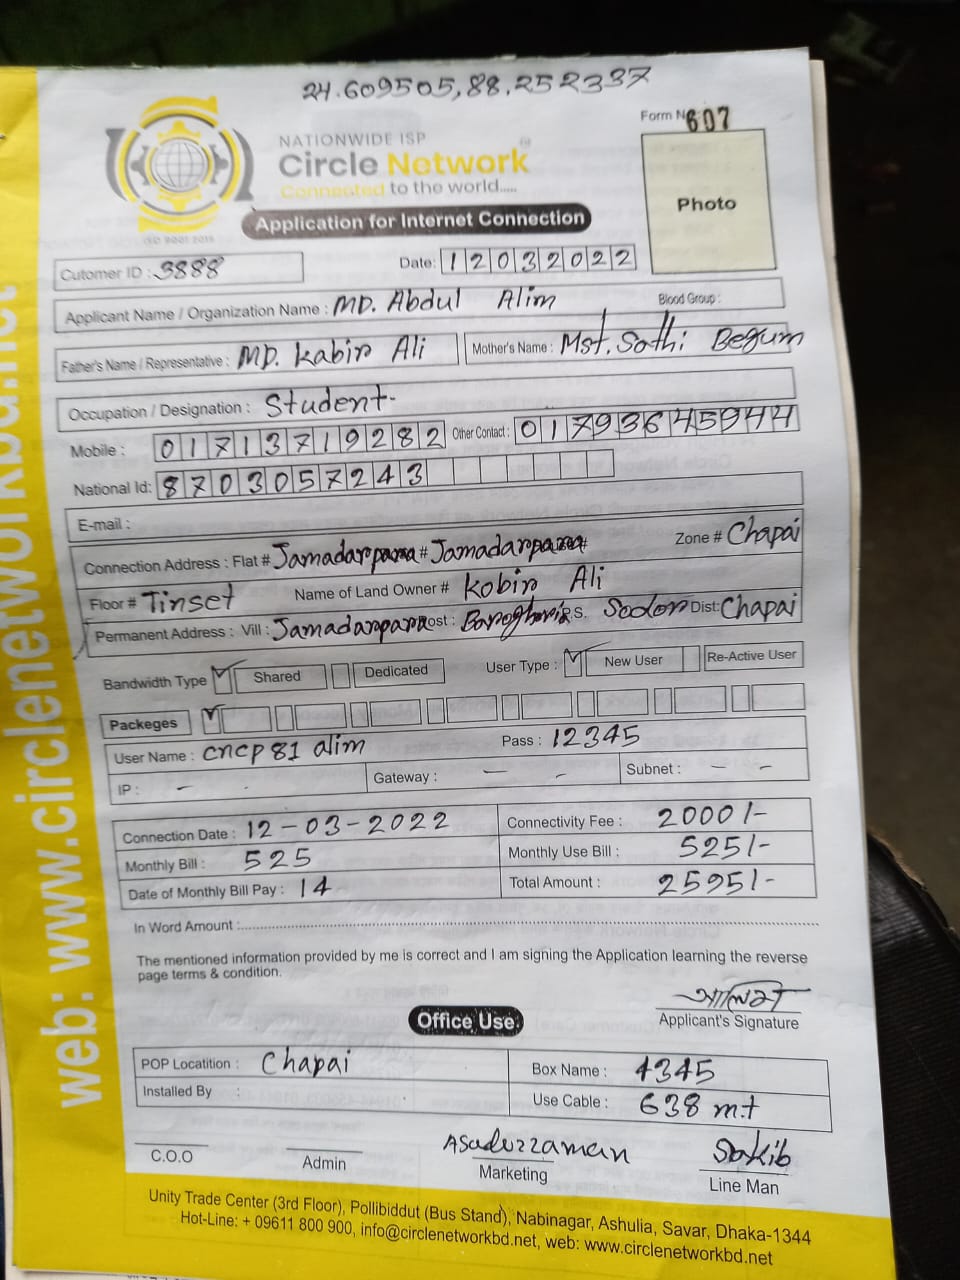 24.609505,88.252337
Form No 607
NATIONWIDE ISP
Circle Network
Connected to the world.....
Photo
Application for Internet Connection
ISO 9001 2015
Cutomer ID : 3888
Date: 12032022
Applicant Name / Organization Name : MD. Abdul Alim Blood Group :
Father's Name / Representative : MD. Kabir Ali Mother's Name : Mst. Sathi Begum
Occupation / Designation : Student
Mobile : 01713719282 Other Contact : 01793645944
National Id: 8703057243
E-mail :
Connection Address : Flat # Jamadarpara # Jamadarpara # Zone # Chapai
Floor # Tinset Name of Land Owner # Kobir Ali
Permanent Address : Vill : Jamadarpara Post : Baroghoria P.S. Sodor Dist: Chapai
Bandwidth Type Shared Dedicated User Type : New User Re-Active User
Packeges
User Name : cncp81 alim Pass : 12345
IP : - Gateway : - - Subnet : - -
Connection Date : 12-03-2022 Connectivity Fee : 2000/-
Monthly Bill : 525 Monthly Use Bill : 525/-
Date of Monthly Bill Pay : 14 Total Amount : 2595/-
In Word Amount :
The mentioned information provided by me is correct and I am signing the Application learning the reverse
page terms & condition.
Applicant's Signature
Office Use:
POP Locatition : Chapai Box Name : 4345
Installed By : Use Cable : 638 mt
Asaduzzaman Sakib
C.O.O Admin Marketing Line Man
Unity Trade Center (3rd Floor), Pollibiddut (Bus Stand), Nabinagar, Ashulia, Savar, Dhaka-1344
Hot-Line: + 09611 800 900, info@circlenetworkbd.net, web: www.circlenetworkbd.net
web: www.circlenetworkbd.net